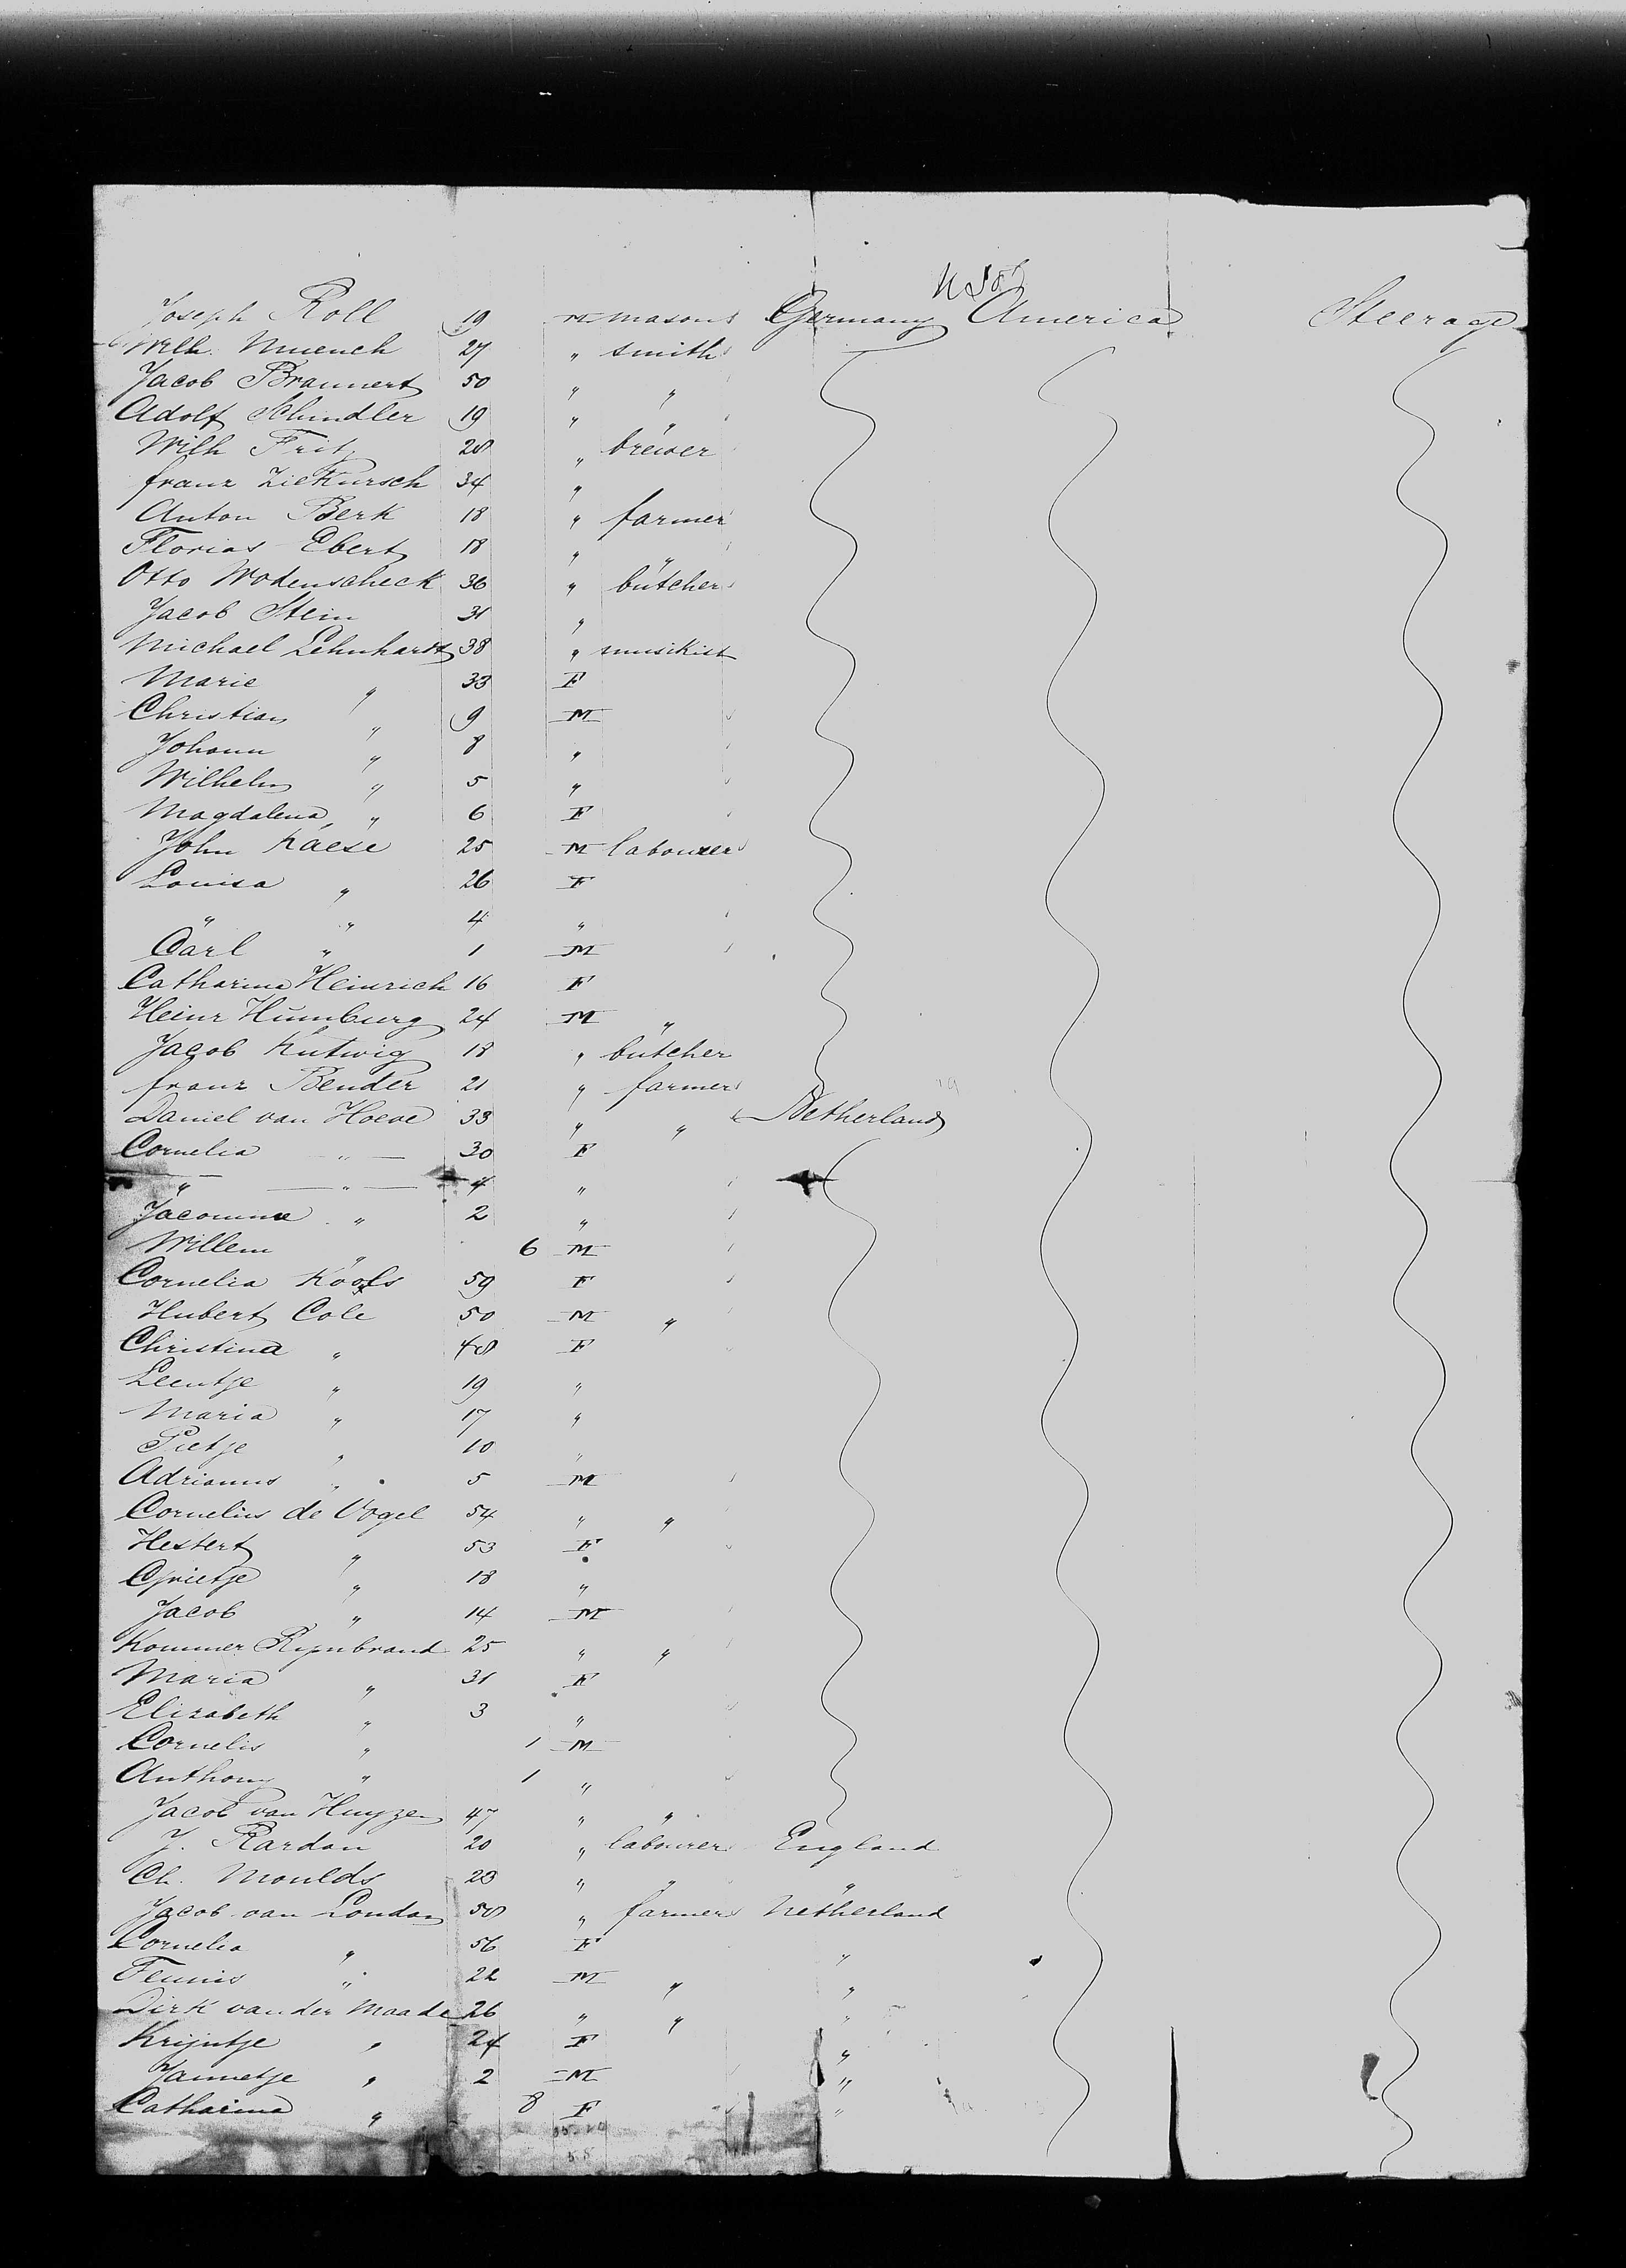 Joseph Roll 19 m mason Germany America Steerage
Wilh. Muench 27 " smith
Jacob Brannert 50 " "
Adolf Schindler 19 " "
Wilh Fritz 28 " brewer
franz Ziekursch 34 "
Anton Berk 18 " farmer
Florias Ebert 18 " "
Otto Wodenscheck 36 " bütcher
Jacob Stein 31 "
Michael Lehnhardt 38 " musikist
Marie " 33 F
Christian " 9 M
Johann " 8 "
Wilhelm " 5 "
Magdalena " 6 F
John Kaese 25 M labourer
Louisa " 26 F
" " 4 "
Carl " 1 M
Catharina Heinrich 16 F
Heinr Humburg 24 M "
Jacob Kutwig 18 " bütcher
franz Bender 21 " farmer
Daniel van Hoeve 33 " " Netherland
Cornelia " 30 F
" " 4 "
Jacomina " 2 "
Willem " 6 M
Cornelia Kools 59 F
Hubert Cole 50 M "
Christina " 48 F
Leentje " 19 "
Maria " 17 "
Pietje " 10 "
Adrianus " 5 M
Cornelius de Vogel 54 " "
Hestert " 53 F
Grietje " 18 "
Jacob " 14 M
Kommer Rynbrand 25 " "
Maria " 31 F
Elizabeth " 3 "
Cornelis " 1 M
Anthony " 1 "
Jacob van Huyzen 47 " "
J. Rardan 20 " labourer England
Ch. Moulds 23 " " "
Jacob van London 58 " farmer Netherland
Cornelia " 56 F "
Teunis " 22 M " "
Dirk van der Maade 26 " " "
Krijntje " 24 F "
Jannetje " 2 M "
Catharina " 8 F "